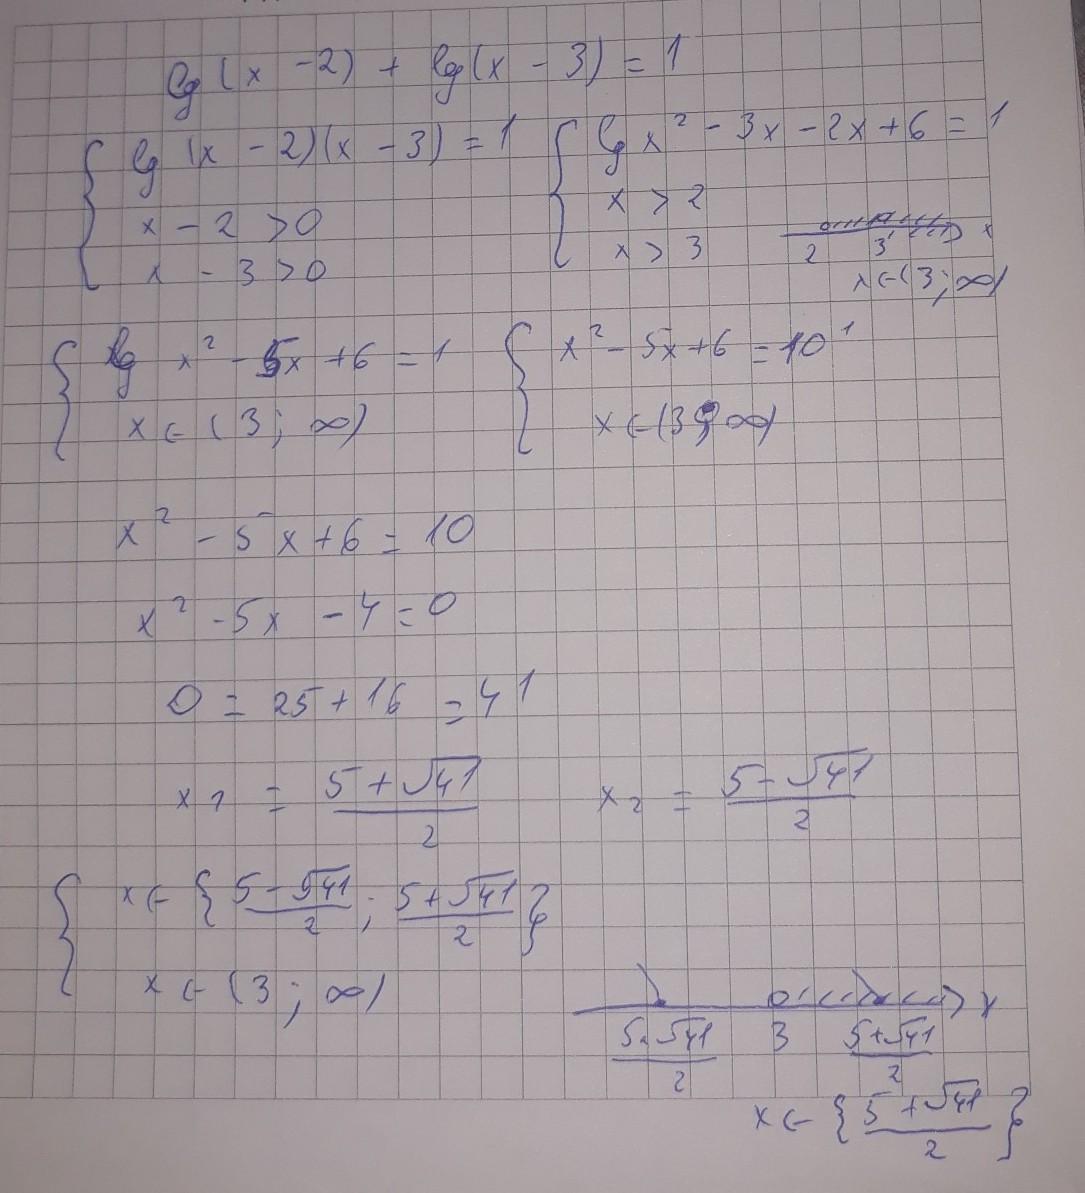 lg (x - 2) + lg (x - 3) = 1
{ lg (x - 2)(x - 3) = 1 { lg x² - 3x - 2x + 6 = 1
x - 2 > 0 x > 2
x - 3 > 0 x > 3
2 3 x
x ∈ (3; ∞)
{ lg x² - 5x + 6 = 1 { x² - 5x + 6 = 10¹
x ∈ (3; ∞) x ∈ (3; ∞)
x² - 5x + 6 = 10
x² - 5x - 4 = 0
D = 25 + 16 = 41
x₁ = (5 + √41)/2 x₂ = (5 - √41)/2
{ x ∈ { (5 - √41)/2 ; (5 + √41)/2 }
x ∈ (3; ∞)
(5 - √41)/2 3 (5 + √41)/2 x
x ∈ { (5 + √41)/2 }